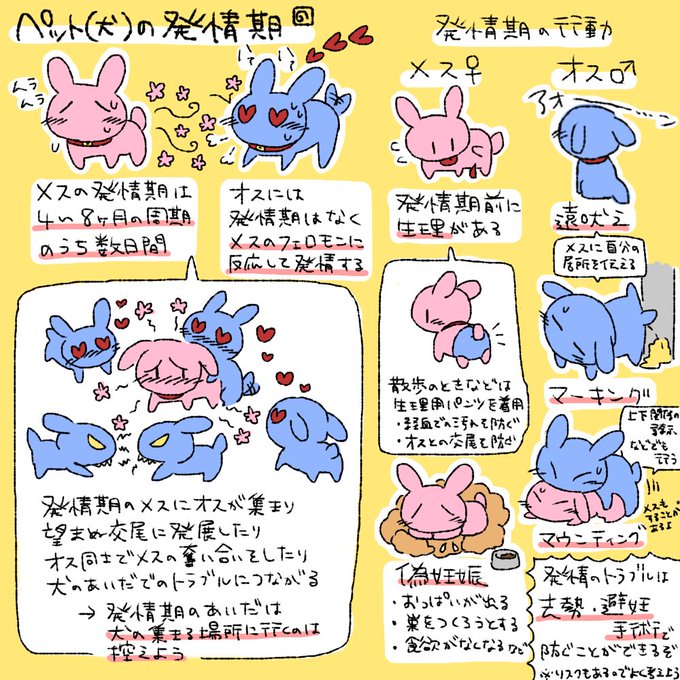 ペット(犬)の発情期
ムラ
ムラ
メスの発情期は
4〜8ヶ月の周期
のうち数日間
オスには
発情期はなく
メスのフェロモンに
反応して発情する
発情期のメスにオスが集まり
望まぬ交尾に発展したり
オス同士でメスの奪い合いをしたり
犬のあいだでのトラブルにつながる
→ 発情期のあいだは
犬の集まる場所に行くのは
控えよう
発情期の行動
メス♀
発情期前に
生理がある
散歩のときなどは
生理用パンツを着用
・経血でのよごれを防ぐ
・オスとの交尾を防ぐ
偽妊娠
・おっぱいが出る
・巣をつくろうとする
・食欲がなくなるなど
オス♂
アオーン
遠吠え
メスに自分の
居所を伝える
マーキング
上下関係の
表示
などでも
行う
メスも
することが
あるよ
マウンティング
発情のトラブルは
去勢・避妊
手術で
防ぐことができるぞ
※リスクもあるのでよく考えよう